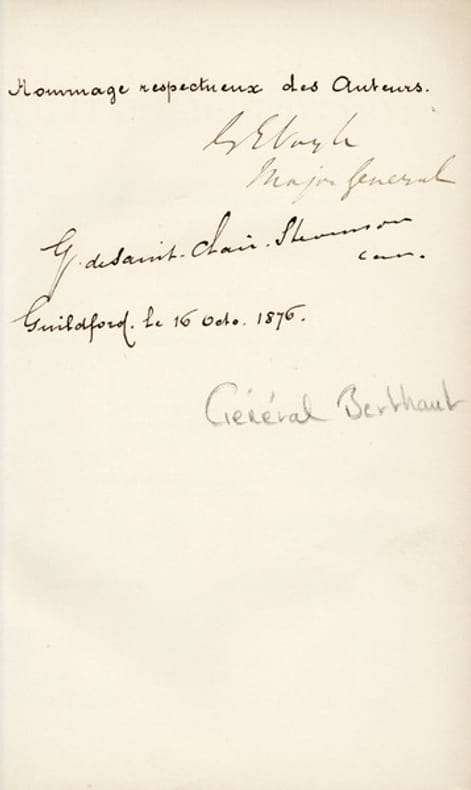 Hommage respectueux des Auteurs.
Major General
G. de Saint-Clair-Stevenson
Guildford. le 16 Octo. 1876.
Général Berthaut